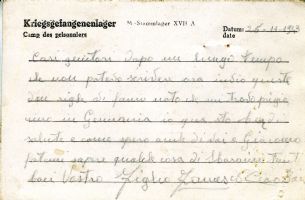 Kriegsgefangenenlager M-Stammlager XVII A Datum: 26-11-1943
Camp des prisonniers date
Cari genitori dopo un lungo tempo
che non potevo scrivere ora invio queste
due righe di farvi noto che mi trovo prigio
niero in Germania io qua sto bene di
salute e come spero anche di voi e Giacomo
fatemi sapere qualche cosa di
baci Vostro Figlio